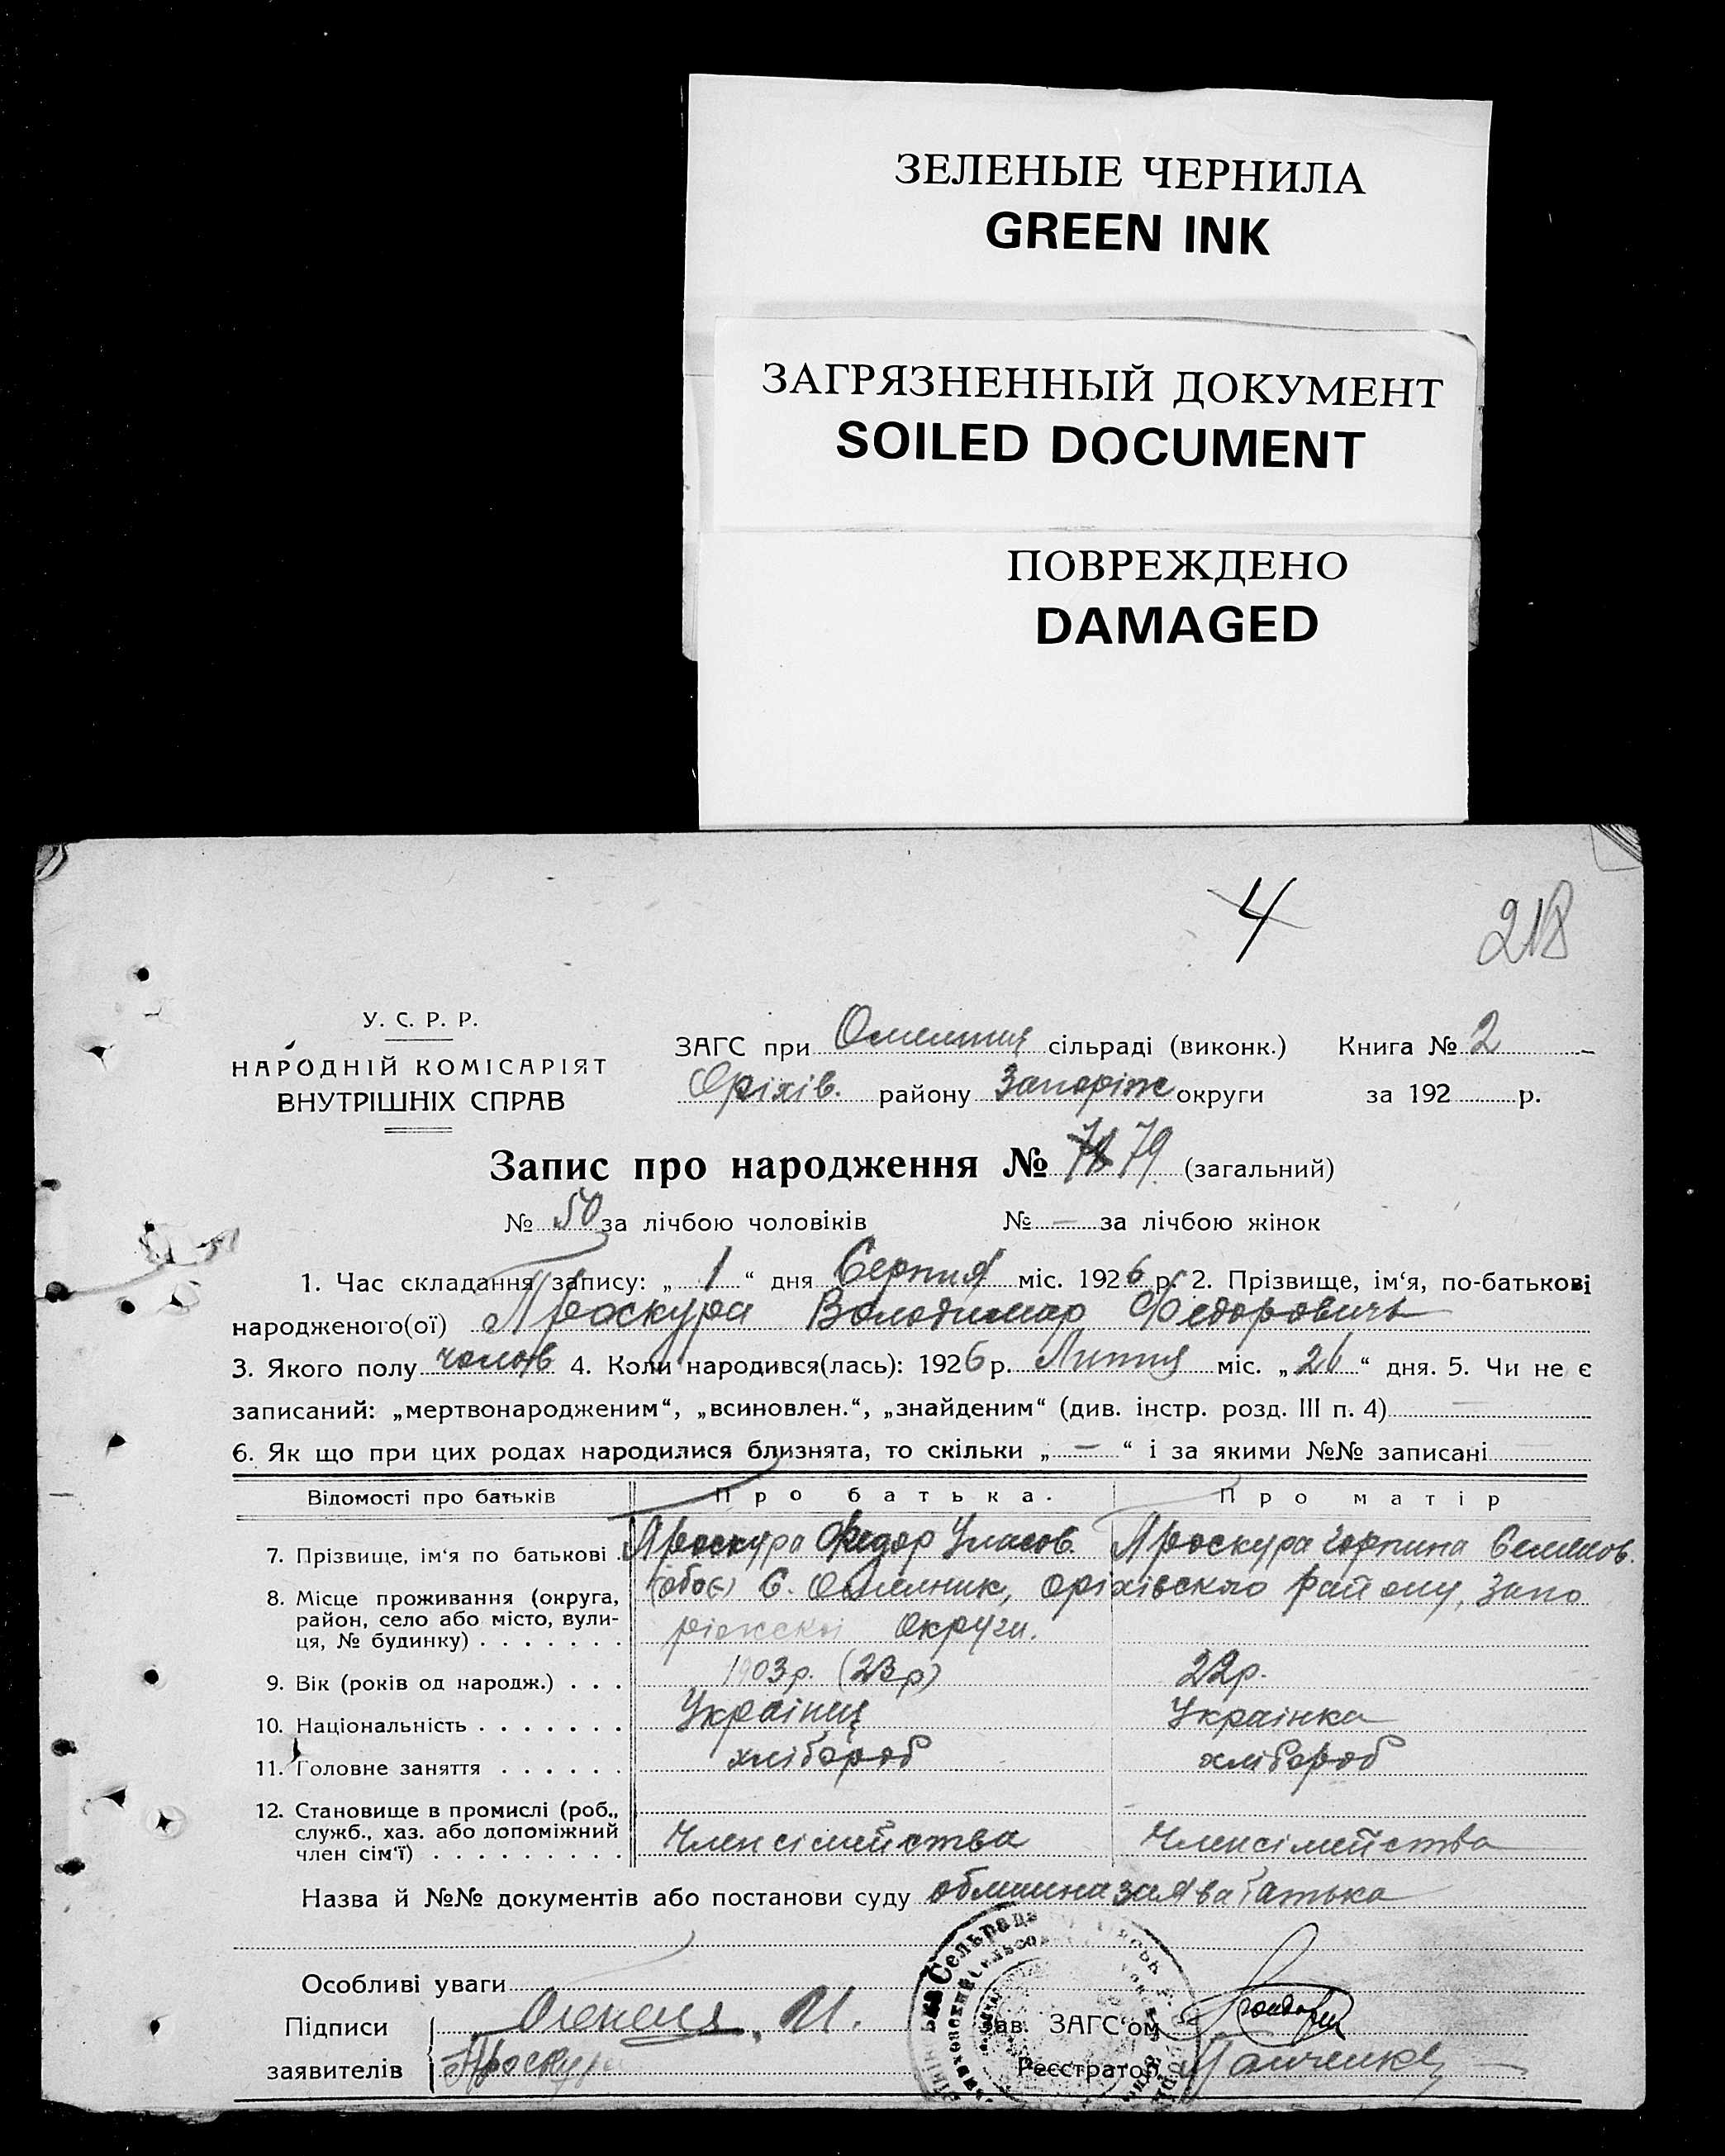 ЗЕЛЕНЫЕ ЧЕРНИЛА
GREEN INK
ЗАГРЯЗНЕННЫЙ ДОКУМЕНТ
SOILED DOCUMENT
ПОВРЕЖДЕНО
DAMAGED
4
218
У. С. Р. Р.
НАРОДНІЙ КОМІСАРІЯТ
ВНУТРІШНІХ СПРАВ
ЗАГС при сільраді (виконк.) Книга № 2
Оріхів. району Запоріж округи за 192 р.
Запис про народження № 79 (загальний)
№ 50 за лічбою чоловіків № — за лічбою жінок
1. Час складання запису: „ 1 “ дня Серпня міс. 1926 р. 2. Прізвище, ім‘я, по-батькові
народженого(ої) Проскура Володимир Федорович
3. Якого полу чолов 4. Коли народився(лась): 1926 р. Липня міс. „ 26 “ дня. 5. Чи не є
записаний: „мертвонародженим“, „всиновлен.“, „знайденим“ (див. інстр. розд. III п. 4) —
6. Як що при цих родах народилися близнята, то скільки „ — “ і за якими №№ записані
Відомості про батьків Про батька. Про матір
7. Прізвище, ім‘я по батькові Проскура Федор Уласов. Проскура Горпина Семенов.
8. Місце проживання (округа, район, село або місто, вулиця, № будинку) (обоє) С. Омельник, Оріхівского району, Запо
ріжскої Округи.
9. Вік (років од народж.) 1903р. (23р) 22р.
10. Національність Українец Українка
11. Головне заняття хлібороб хлібороб
12. Становище в промислі (роб.,
служб., хаз. або допоміжний
член сім‘ї) Член сімейства Член сімейства
Назва й №№ документів або постанови суду заява батька
Особливі уваги
Підписи
заявителів Проскура
Зав. ЗАГС‘ом
Реєстратор Панченко